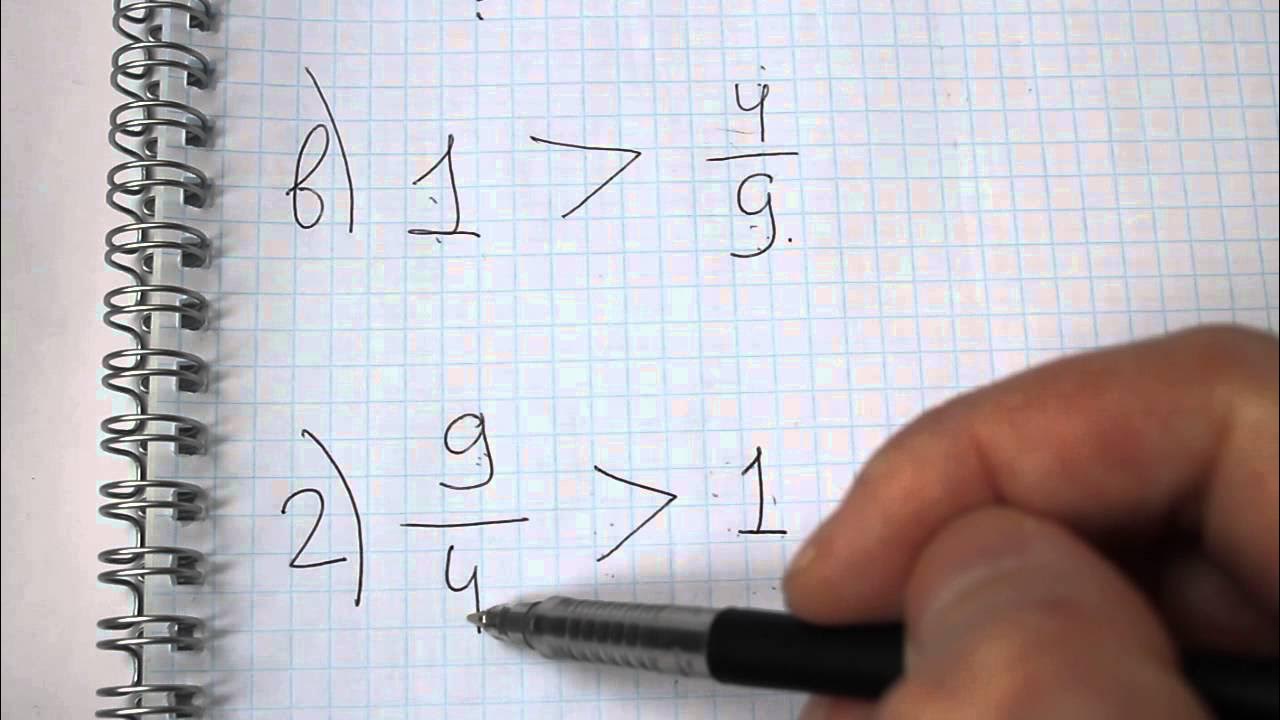 в) 1 > 4/9
г) 9/4 > 1